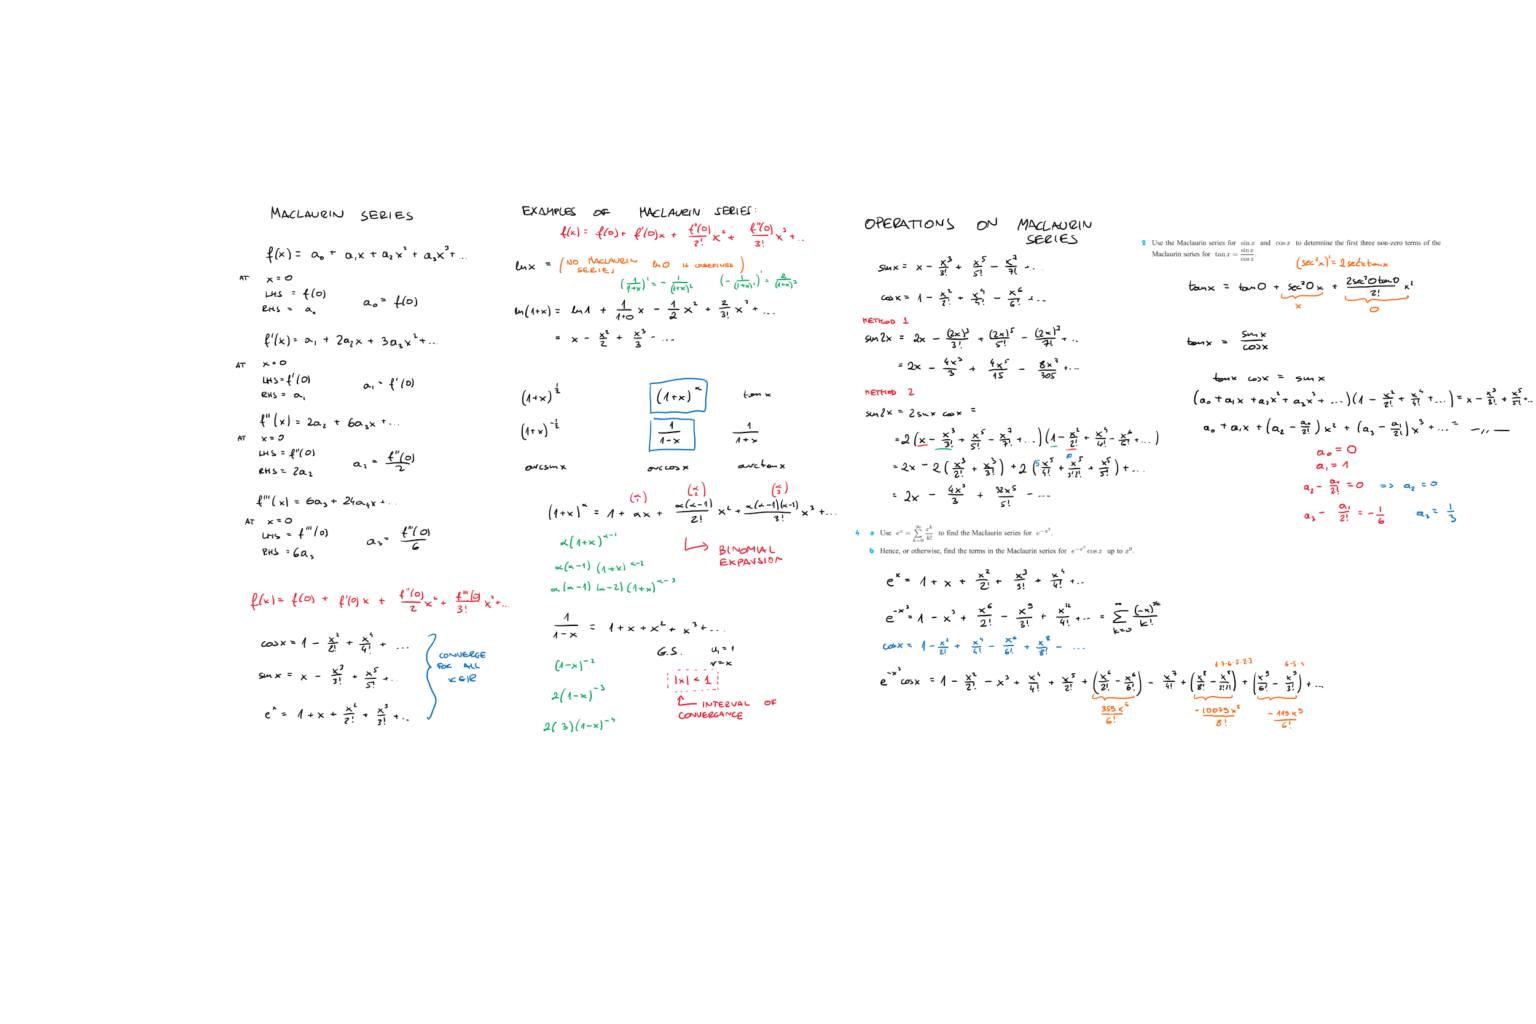 MACLAURIN SERIES
f(x) = a₀ + a₁x + a₂x² + a₃x³ + ...
AT x = 0
LHS = f(0)
RHS = a₀
a₀ = f(0)
f'(x) = a₁ + 2a₂x + 3a₃x² + ...
AT x = 0
LHS = f'(0)
RHS = a₁
a₁ = f'(0)
f''(x) = 2a₂ + 6a₃x + ...
AT x = 0
LHS = f''(0)
RHS = 2a₂
a₂ = f''(0)/2
f'''(x) = 6a₃ + 24a₄x + ...
AT x = 0
LHS = f'''(0)
RHS = 6a₃
a₃ = f'''(0)/6
f(x) = f(0) + f'(0)x + f''(0)/2 x² + f'''(0)/3! x³ + ...
cosx = 1 - x²/2! + x⁴/4! + ...
sinx = x - x³/3! + x⁵/5! + ...
eˣ = 1 + x + x²/2! + x³/3! + ...
CONVERGE
FOR ALL
x∈ℝ
EXAMPLES OF MACLAURIN SERIES:
f(x) = f(0) + f'(0)x + f''(0)/2! x² + f'''(0)/3! x³ + ...
lnx = (NO MACLAURIN SERIES, ln0 is UNDEFINED)
(1/(1+x))' = -1/(1+x)² (-1/(1+x)²)' = 2/(1+x)³
ln(1+x) = ln1 + 1/(1+0) x - 1/2 x² + 2/3! x³ + ...
= x - x²/2 + x³/3 - ...
(1+x)^(1/2) (1+x)^α tanx
(1+x)^(-1/2) 1/(1-x) 1/(1+x)
arcsinx arccosx arctanx
(α 1) (α 2) (α 3)
(1+x)^α = 1 + αx + α(α-1)/2! x² + α(α-1)(α-2)/3! x³ + ...
α(1+x)^(α-1)
α(α-1)(1+x)^(α-2)
α(α-1)(α-2)(1+x)^(α-3)
BINOMIAL
EXPANSION
1/(1-x) = 1 + x + x² + x³ + ...
G.S. u₁ = 1
r = x
(1-x)⁻²
2(1-x)⁻³
2(3)(1-x)⁻⁴
|x| < 1
INTERVAL OF
CONVERGANCE
OPERATIONS ON MACLAURIN
SERIES
sinx = x - x³/3! + x⁵/5! - x⁷/7! + ...
cosx = 1 - x²/2! + x⁴/4! - x⁶/6! + ...
METHOD 1
sin2x = 2x - (2x)³/3! + (2x)⁵/5! - (2x)⁷/7! + ...
= 2x - 4x³/3 + 4x⁵/15 - 8x⁷/305 + ...
METHOD 2
sin2x = 2sinx cosx =
= 2(x - x³/3! + x⁵/5! - x⁷/7! + ...)(1 - x²/2! + x⁴/4! - x⁶/6! + ...)
= 2x - 2(x³/2! + x³/3!) + 2(x⁵/4! + x⁵/3!2! + x⁵/5!) + ...
= 2x - 4x³/3 + 32x⁵/5! - ...
4 a Use eˣ = ∑_{k=0}^{∞} xᵏ/k! to find the Maclaurin series for e^(-x³).
b Hence, or otherwise, find the terms in the Maclaurin series for e^(-x³) cos x up to x⁹.
eˣ = 1 + x + x²/2! + x³/3! + x⁴/4! + ...
e^(-x³) = 1 - x³ + x⁶/2! - x⁹/3! + x¹²/4! + ... = ∑_{k=0}^{∞} (-x)^(3k)/k!
cosx = 1 - x²/2! + x⁴/4! - x⁶/6! + x⁸/8! - ...
e^(-x³) cosx = 1 - x²/2! - x³ + x⁴/4! + x⁵/2! + (x⁶/2! - x⁶/6!) - x⁷/4! + (x⁸/8! - x⁸/2!2!) + (x⁹/6! - x⁹/3!) + ...
359x⁶/6! -10079x⁸/8! -119x⁹/6!
2 Use the Maclaurin series for sin x and cos x to determine the first three non-zero terms of the
Maclaurin series for tan x = sin x/cos x.
(sec²x)' = 2sec²xtanx
tanx = tan0 + sec²0x + 2sec²0tan0/2! x²
x 0
tanx = sinx/cosx
tanx cosx = sinx
(a₀ + a₁x + a₂x² + a₃x³ + ...)(1 - x²/2! + x⁴/4! + ...) = x - x³/3! + x⁵/5! + ...
a₀ + a₁x + (a₂ - a₀/2!)x² + (a₃ - a₁/2!)x³ + ... = -,,-
a₀ = 0
a₁ = 1
a₂ - a₀/2! = 0 => a₂ = 0
a₃ - a₁/2! = -1/6 a₃ = 1/3